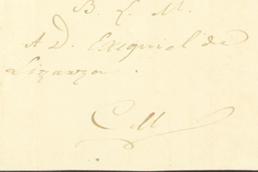 B. L. M.
A D. Exequiel de
Lizarza.
C. M